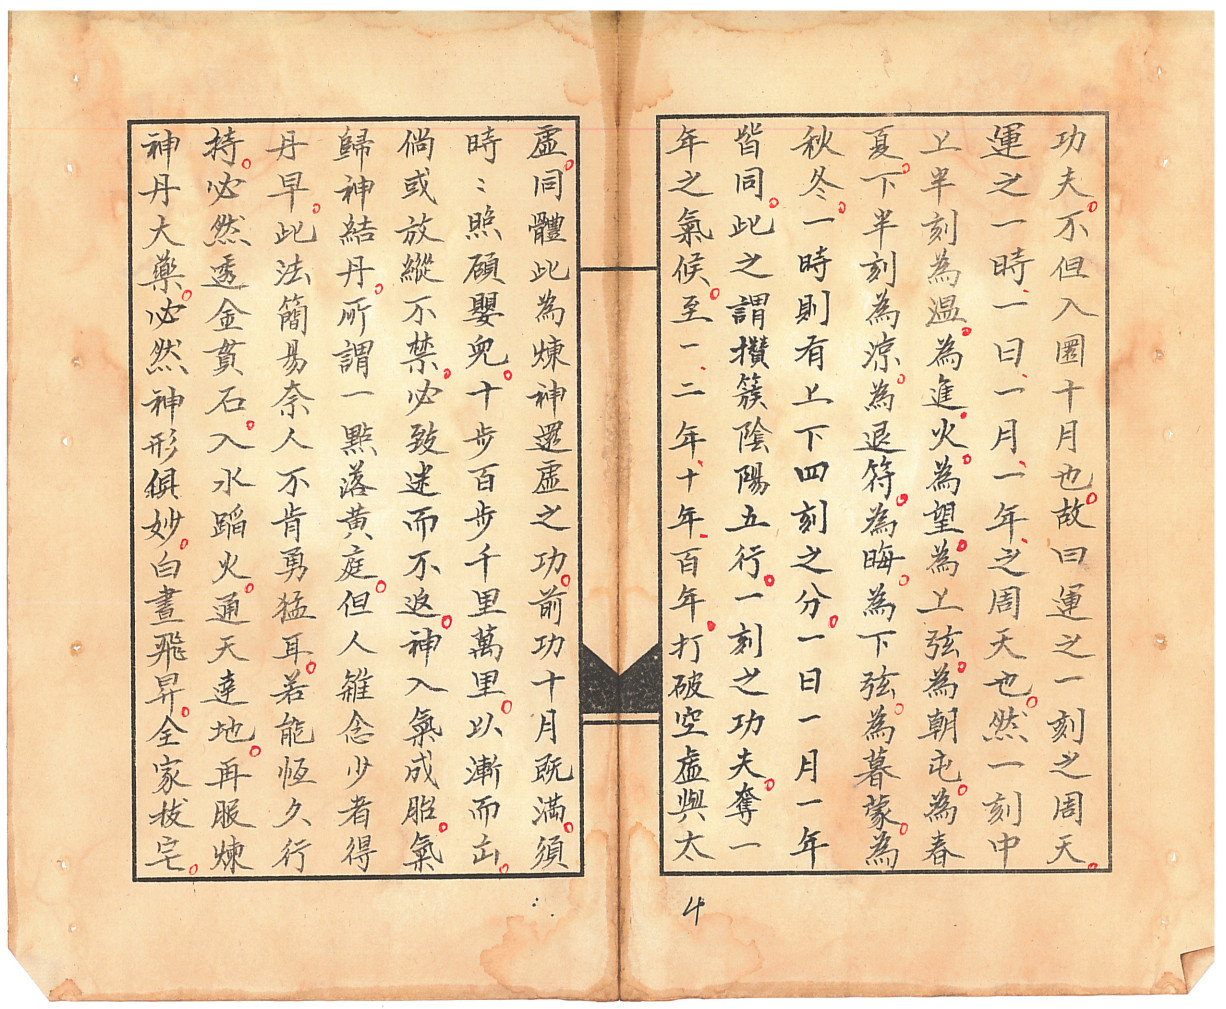 功夫。不但入圜十月也。故曰運之一刻之周天。
運之一時、一日、一月、一年、之周天也。然一刻中
上半刻為溫。為進。火。為望。為上弦。為朝屯。為春
夏。下半刻為涼。為退符。為晦。為下弦。為暮蒙。為
秋冬。一時則有上下四刻之分。一日一月一年
皆同。此之謂攢簇陰陽五行。一刻之功夫。奪一
年之氣候。至一、二年、十年、百年。打破空虛與太
虛。同體此為煉神還虛之功。前功十月既滿。須
時〻照顧嬰兒。十步百步千里萬里。以漸而出。
倘或放縱不禁。必致迷而不返。神入氣成胎。氣
歸神結丹。所謂一點落黃庭。但人雜念少者得
丹早。此法簡易奈人不肯勇猛耳。若能恆久行
持。必然透金貫石。入水蹈火。通天達地。再服煉
神丹大藥。必然神形俱妙。白晝飛昇。全家拔宅。
4